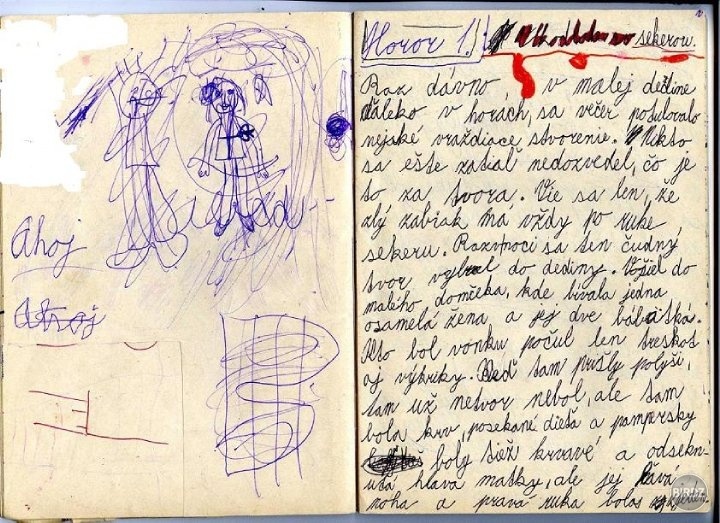 Ahoj
Ahoj
Horor 1.
sekerou.
Raz dávno v malej dedine
ďaleko v horách, sa večer potulovalo
nejaké vraždiace stvorenie. Nikto
sa ešte zatiaľ nedozvedel, čo je
to za tvora. Vie sa len, že
zlý zabiak má vždy po ruke
sekeru. Raz v noci sa ten čudný
tvor vybral do dediny. Vošiel do
malého domčeka, kde bívala jedna
osamelá žena a jej dve bábätká.
Kto bol vonku počul len treskot
aj výkriky. Keď tam prišly polyši,
tam už netvor nebol, ale tam
bola krv, posekané dieťa a pampersky
boly tiež krvavé a odsekn-
utá hlava matky, ale jej ľavá
noha a pravá ruka bola